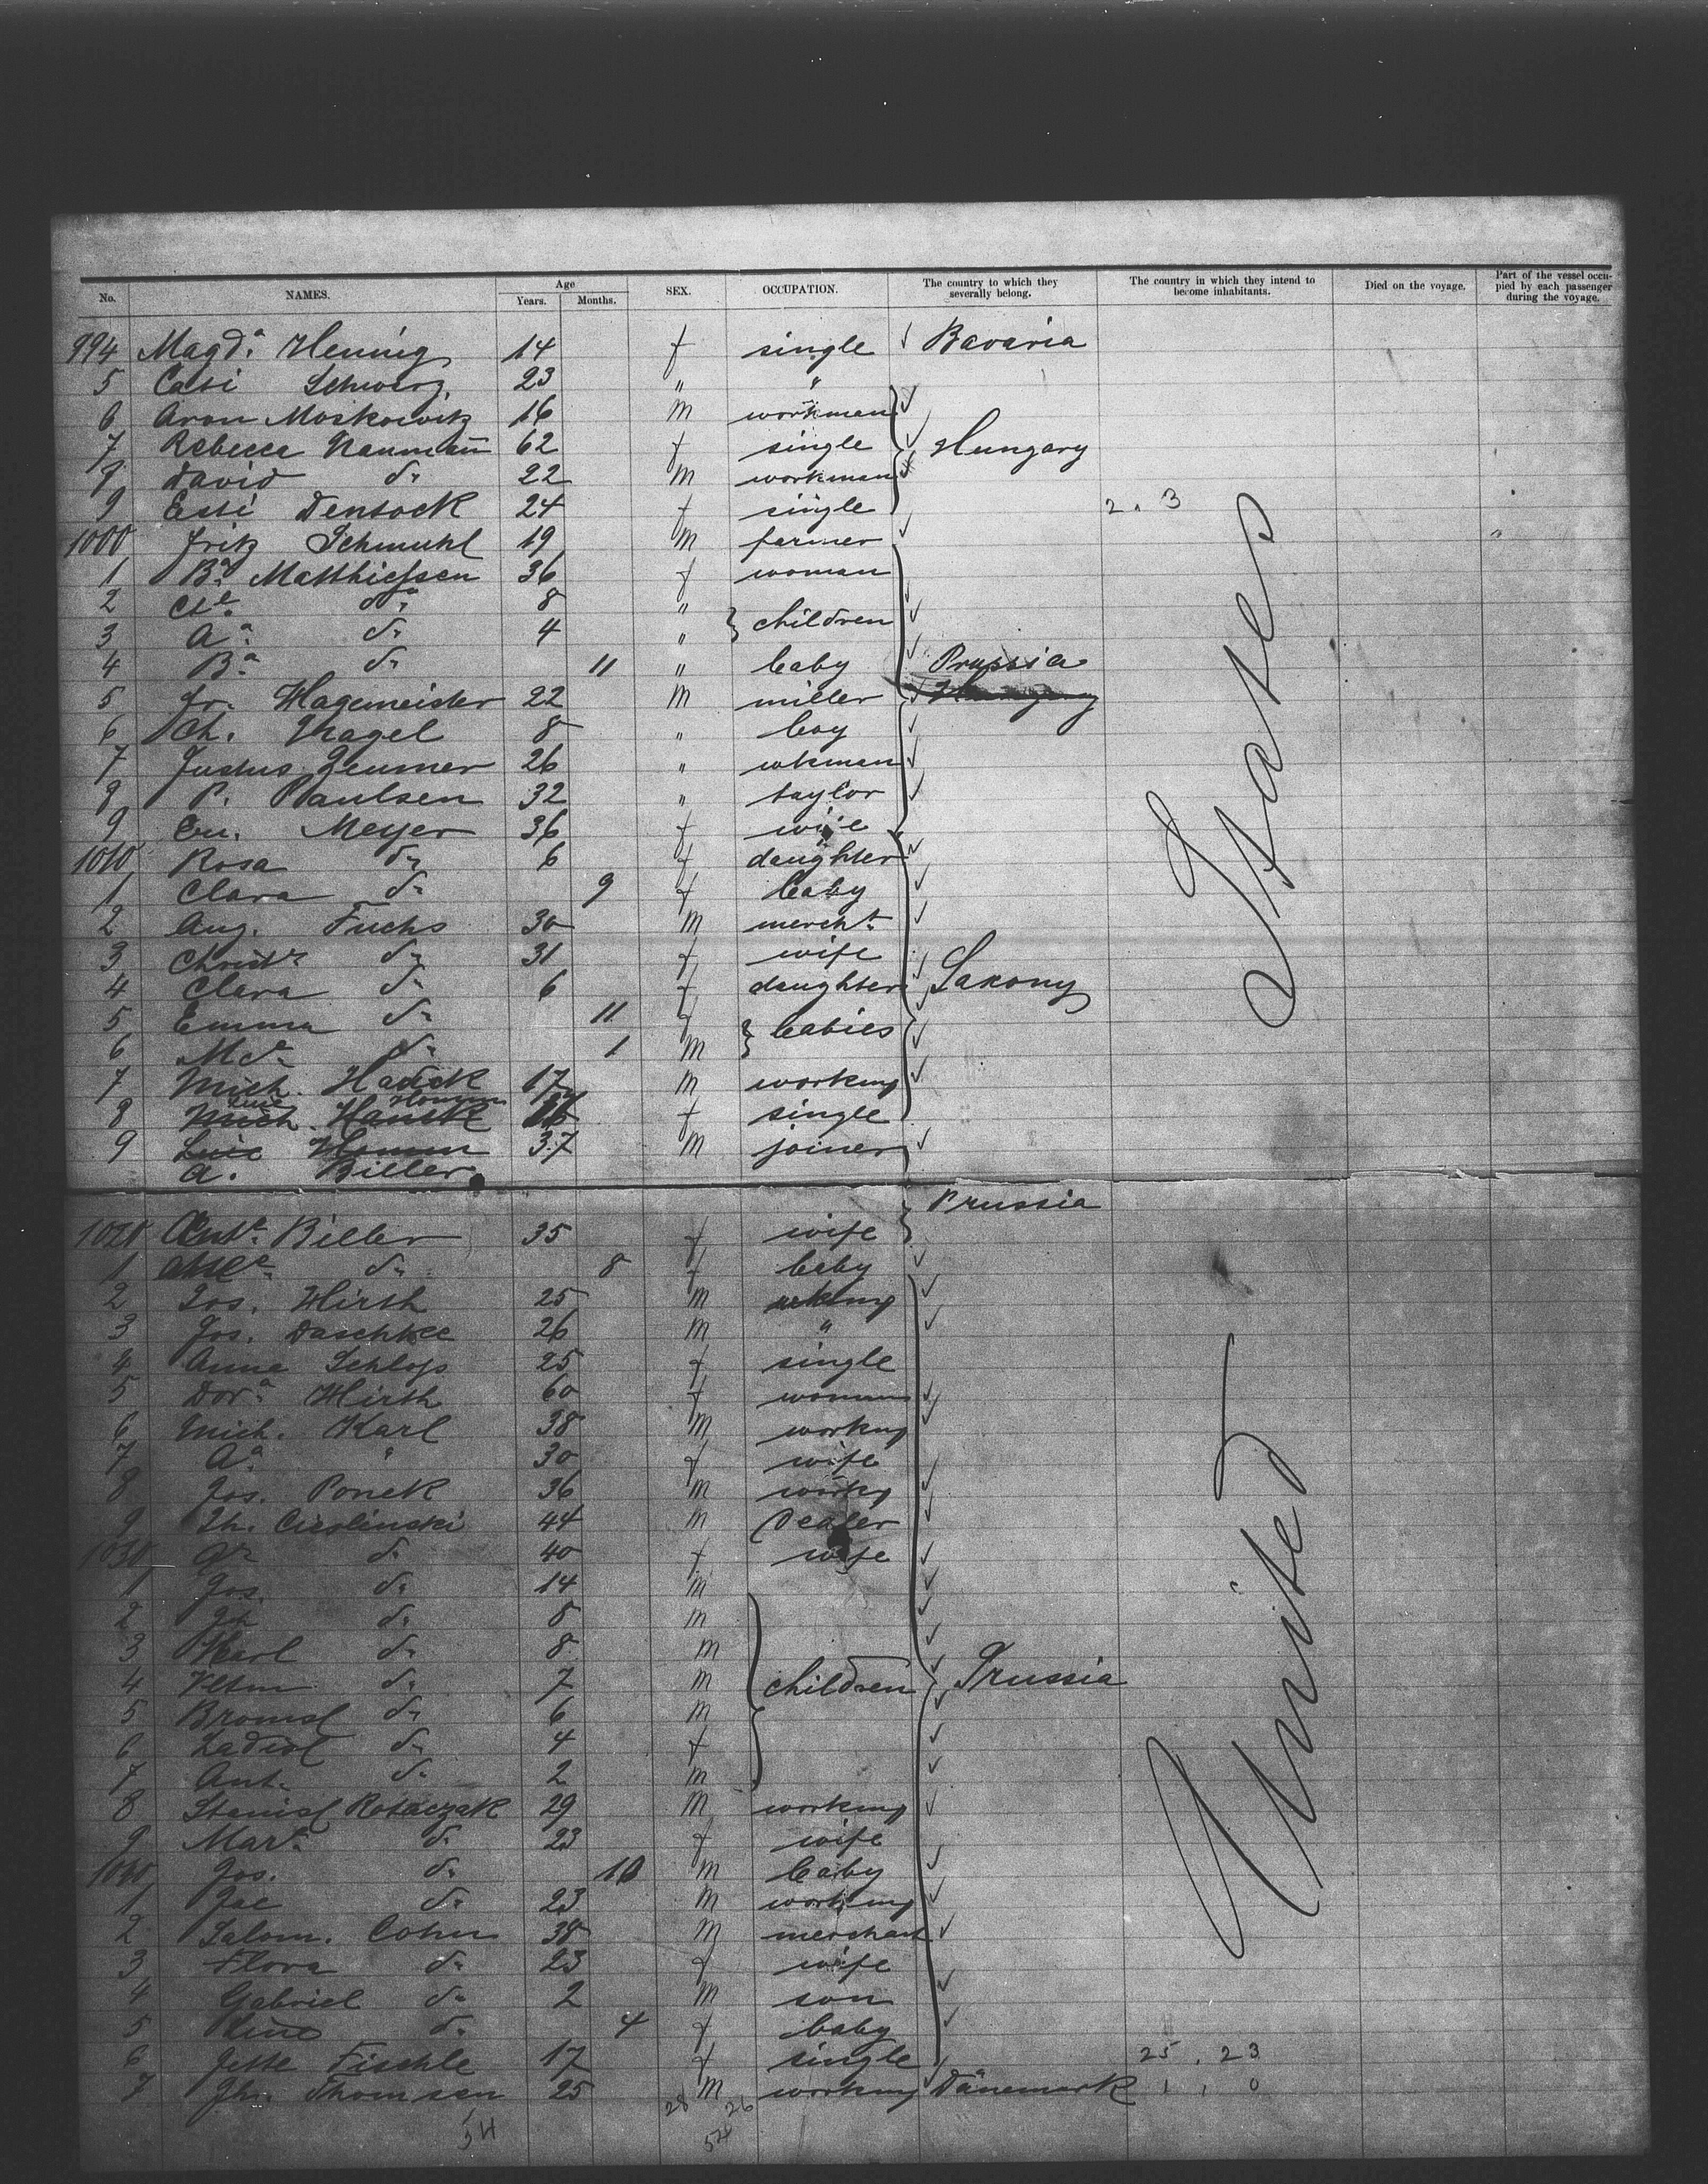 No. NAMES. Age Years. Months. SEX. OCCUPATION. The country to which they severally belong. The country in which they intend to become inhabitants. Died on the voyage. Part of the vessel occupied by each passenger during the voyage.
994 Magd.a Hennig 14 f single Bavaria
5 Cati Schwarz 23 " "
6 Aron Moskowitz 16 m workman
7 Rebecca Naumañ 62 f single Hungary
8 David do 22 m workman
9 Esti Tensock 24 f single 2 . 3
1000 Fritz Schmuhl 19 m farmer
1 B.a Matthiessen 36 f woman
2 do 8 " children
3 A.a do 4 "
4 B.a do 11 " baby Prussia
5 Fr. Hagemeister 22 m miller Hungary
6 Ch. Nagel 8 " boy
7 Justus Zeumer 26 " wkman
8 P. Paulsen 32 " taylor
9 Em. Meyer 36 f wife
1010 Rosa do 6 f daughter
1 Clara do 9 f baby
2 Aug. Fuchs 30 m merch.t
3 do 31 f wife
4 Clara do 6 f daughter Saxony
5 Emma do 11 f babies
6 do 1 m
7 Mich. Hauck 17 m working
8 f single
9 37 m joiner
A. Biller
Prussia
1020 Biller 35 f wife
1 do 8 f baby
2 Jos. Hirth 25 m wkking
3 Jos. Daschkee 26 m "
4 Anna Schloss 25 f single
5 Dor.a Hirth 60 f woman
6 Mich. Karl 38 m workng
7 A.a " 30 f wife
8 Jos. Ponek 36 m workg
9 Th. Cieslinski 44 m Dealer
1030 do 40 f wife
1 Jos. do 14 m
2 do 8 m
3 Karl do 8 m
4 do 7 m children Prussia
5 do 6 m
6 do 4 f
7 Ant. do 2 m
8 Stanisl Rotaczak 29 m working
9 Mar.a do 23 f wife
1040 Jos. do 10 m baby
1 Jac do 23 m working
2 Salom. Cohn 38 m merchant
3 Flora do 23 f wife
4 Gabriel do 2 m son
5 do 4 f baby
6 Jette Fischle 17 f single 25 . 23
7 Jhr. Thomsen 25 m working Dänemark 1 , 0
28 26
54 54
United States